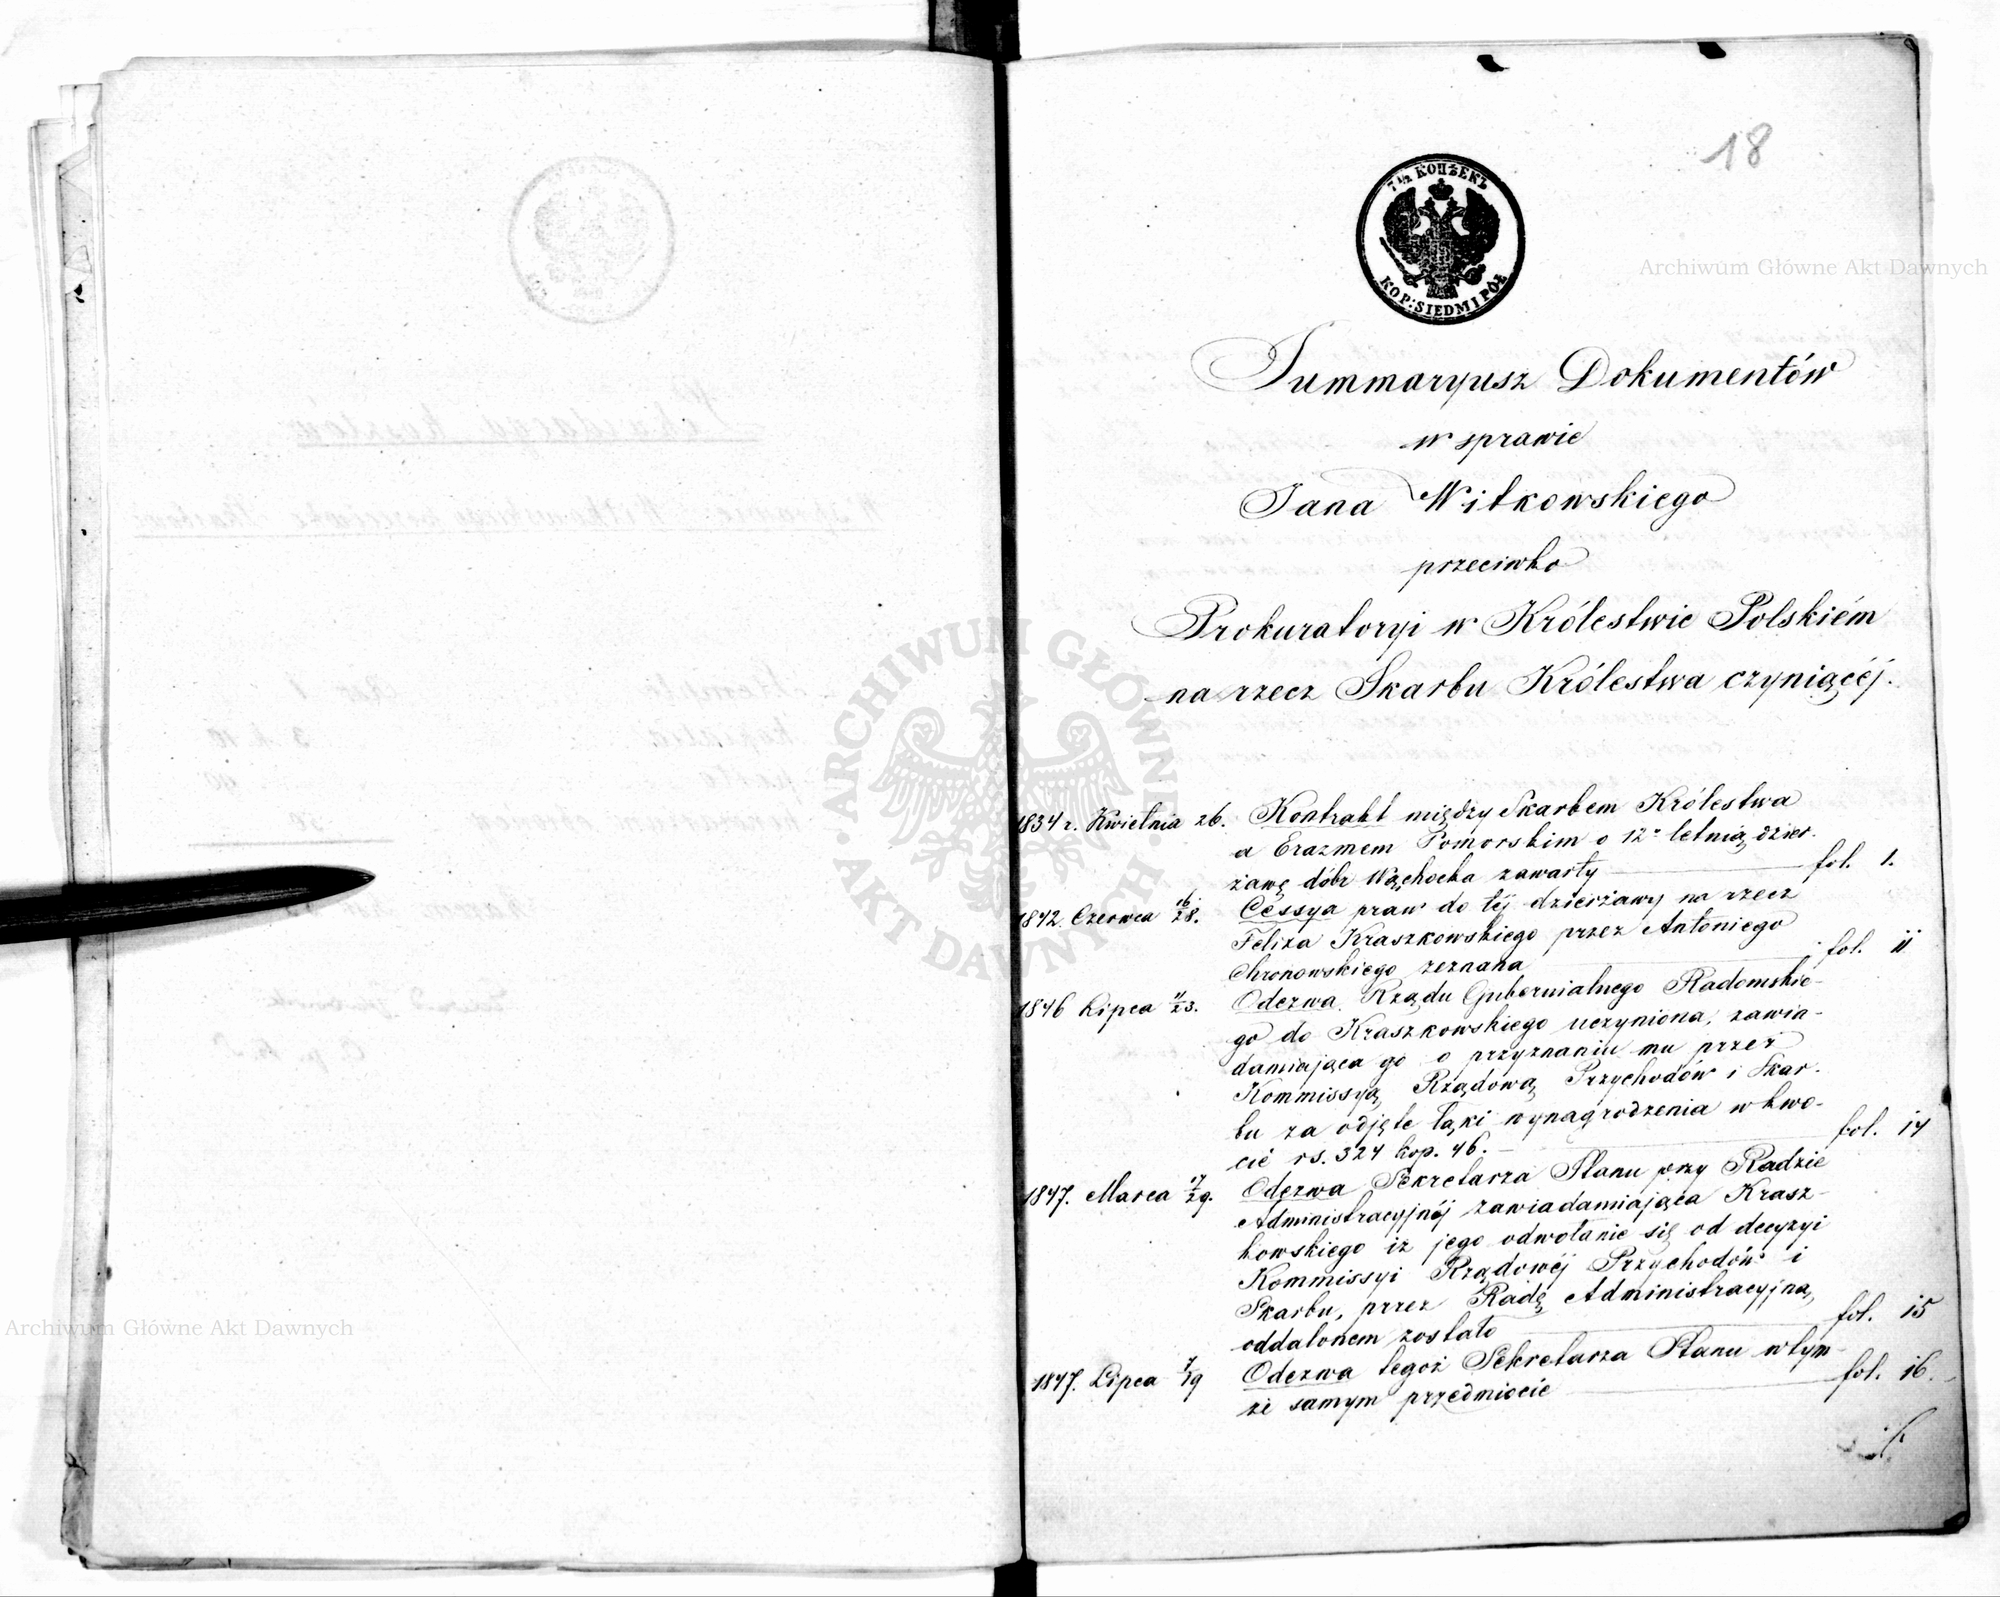 18
7 1/2 КОПѢЕКЪ
KOP: SIEDM I PÓŁ
Archiwum Główne Akt Dawnych
Summaryusz Dokumentów
w sprawie
Jana Witkowskiego
przeciwko
Prokuratoryi w Królestwie Polskiém
na rzecz Skarbu Królestwa czyniącéj.
ARCHIWUM GŁÓWNE AKT DAWNYCH
1834 r. Kwietnia 26. Kontrakt między Skarbem Królestwa
a Erazmem Pomorskim o 12o letnią dzier-
żawę dóbr Wąchocka zawarty fol. 1.
1842. Czerwca 16/28. Cessya praw do téj dzierżawy na rzecz
Felixa Kraszkowskiego przez Antoniego
Chronowskiego zeznana fol. 11
1846 Lipca 11/23. Odezwa Rządu Gubernialnego Radomskie-
go do Kraszkowskiego uczyniona, zawia-
damiająca go o przyznaniu mu przez
Kommissyą Rządową Przychodów i Skar-
bu za odjęte łąki wynagrodzenia w kwo-
cie rs. 324 kop. 46. fol. 14
1847. Marca 17/29. Odezwa Sekretarza Stanu przy Radzie
Administracyjnéj zawiadamiająca Krasz-
kowskiego iż jego odwołanie się od decyzyi
Kommissyi Rządowéj Przychodów i
Skarbu, przez Radę Administracyjną
oddalonem zostało fol. 15
1847. Lipca 7/19 Odezwa tegoż Sekretarza Stanu w tym-
że samym przedmiocie fol. 16.
Archiwum Główne Akt Dawnych